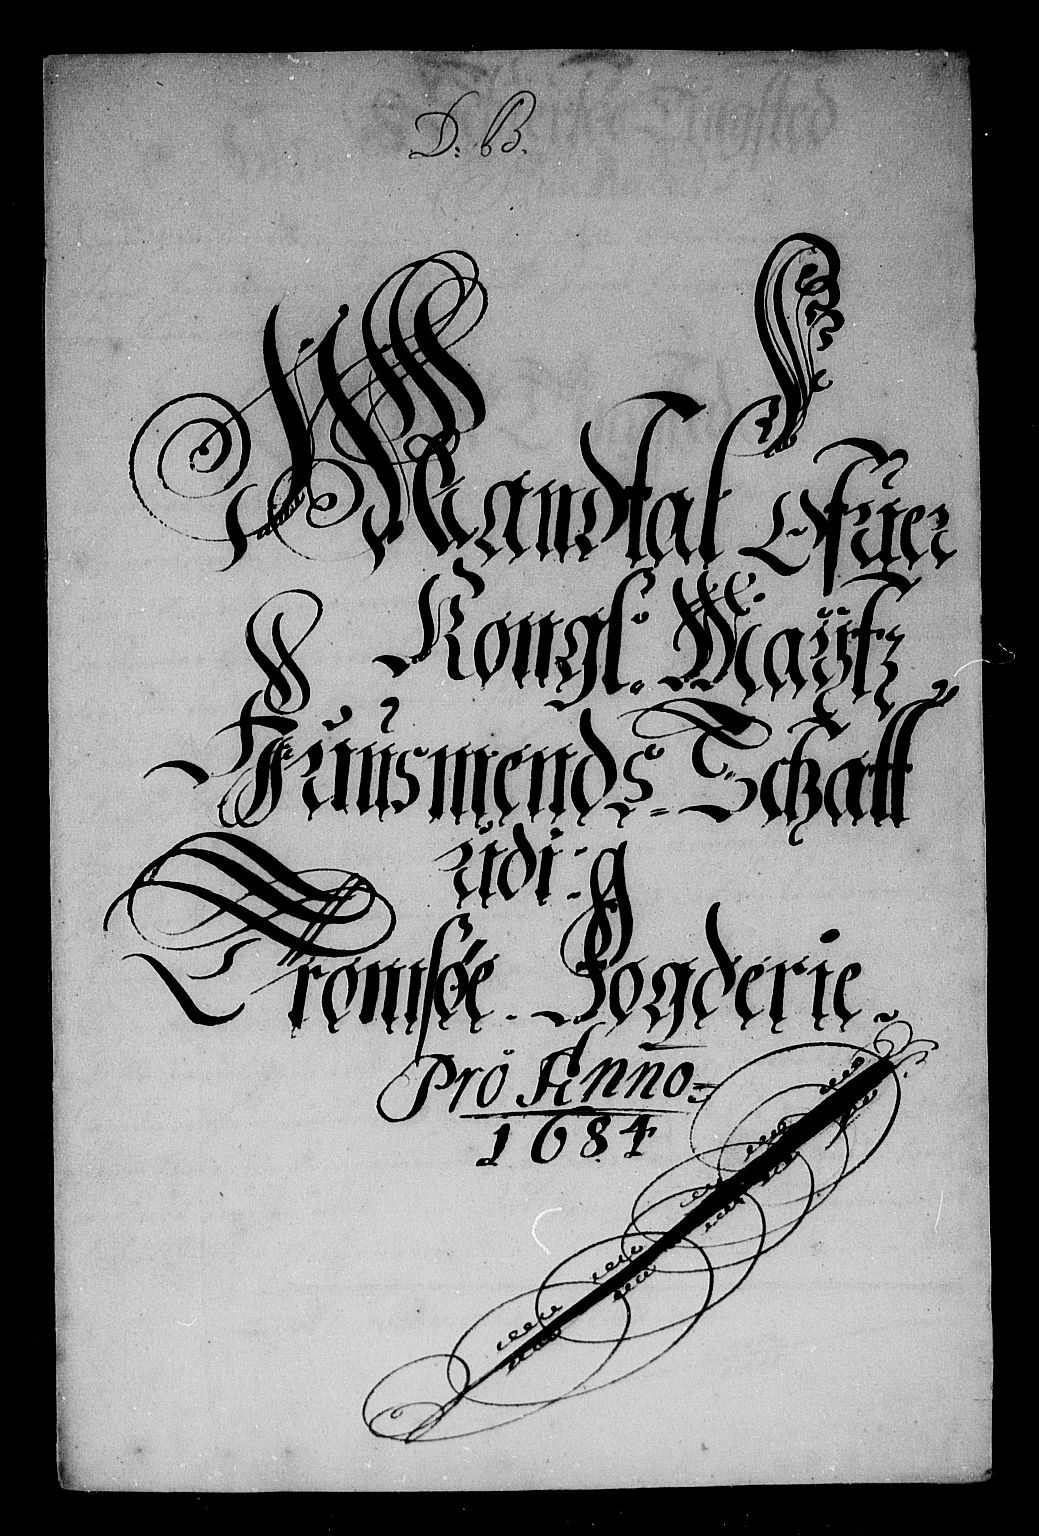 D: B.
Mandtal Ofuer
Kongl: Maÿtz
Huusmends Schatt
udi
Tromsøe Fogderie.
Pro Anno
1684